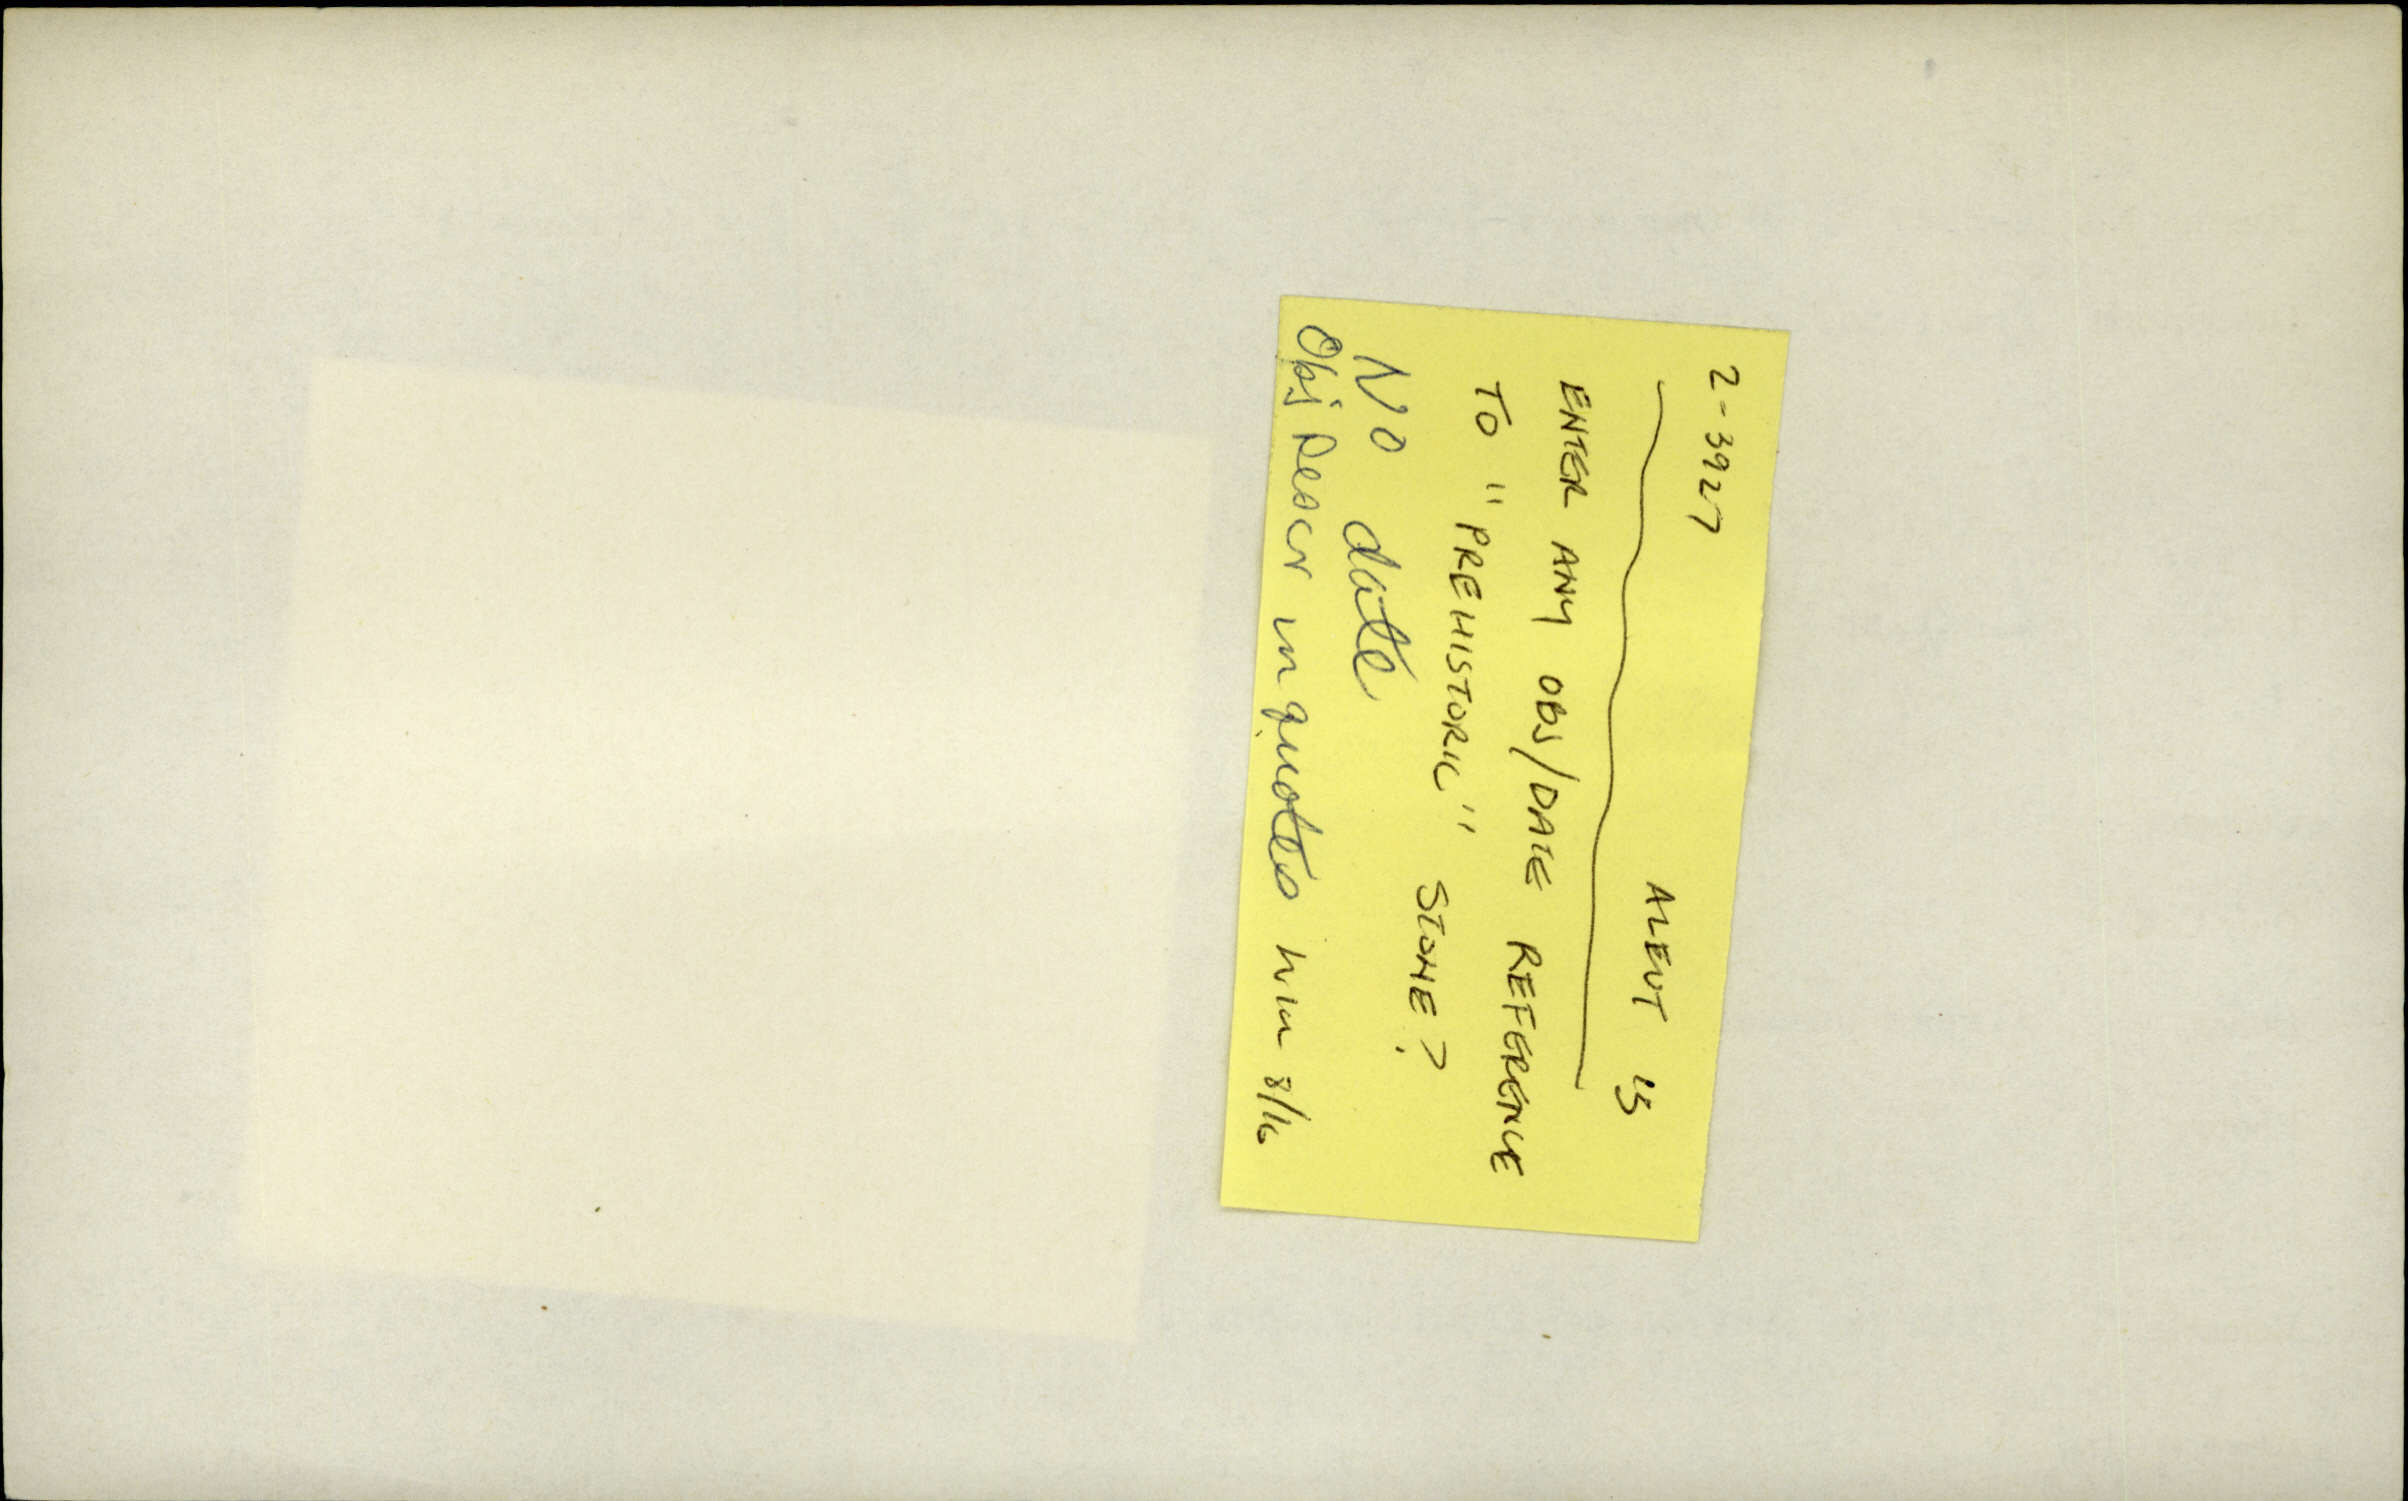 2-3927 ALEUT 15
ENTER ANY OBJ/DATE REFERENCE
TO "PREHISTORIC" STONE?
No date
Obj Descr in quotes 8/16